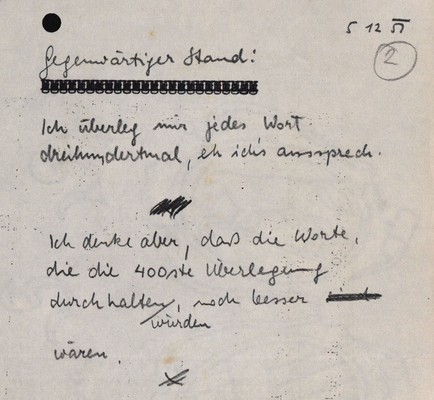 5 12 51
2
Gegenwärtiger Stand:
Ich überleg mir jedes Wort
dreihundertmal, eh ich's aussprech.
Ich denke aber, daß die Worte,
die die 400ste Überlegung
durchhalten, noch besser
würden
wären.